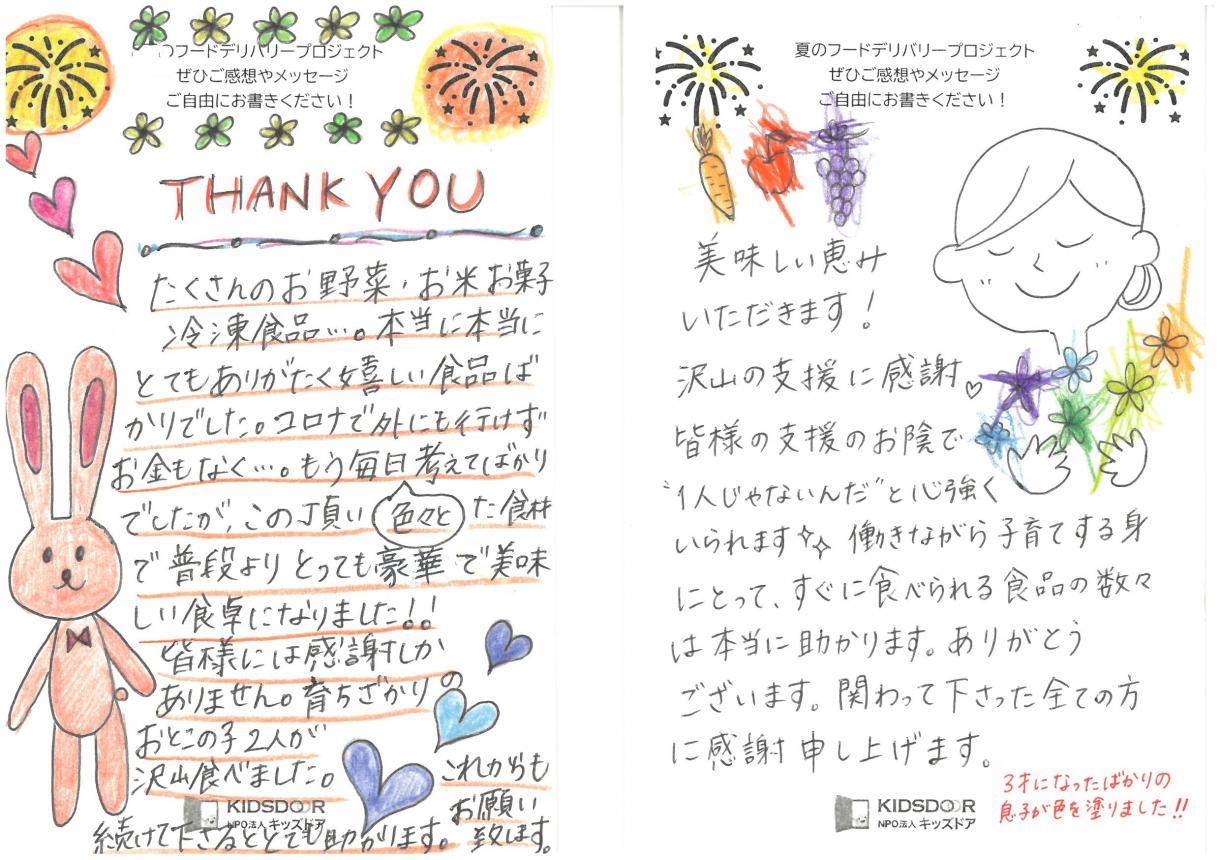 のフードデリバリープロジェクト
ぜひご感想やメッセージ
ご自由にお書きください！
THANK YOU
たくさんのお野菜・お米お菓子
冷凍食品…。本当に本当に
とてもありがたく嬉しい食品ば
かりでした。コロナで外にも行けず
お金もなく…。もう毎日考えてばかり
でしたが、この頂い色々とた食材
で普段よりとっても豪華で美味
しい食卓になりました!!
皆様には感謝しか
ありません。育ちざかりの
おとこの子2人が
沢山食べました。
これからも
お願い
致します。
KIDSDOOR
NPO法人キッズドア
続けて下さるととても助かります。
夏のフードデリバリープロジェクト
ぜひご感想やメッセージ
ご自由にお書きください！
美味しい恵み
いただきます！
沢山の支援に感謝
皆様の支援のお陰で
"1人じゃないんだ"と心強く
いられます 働きながら子育てする身
にとって、すぐに食べられる食品の数々
は本当に助かります。ありがとう
ございます。関わって下さった全ての方
に感謝申し上げます。
3才になったばかりの
息子が色を塗りました!!
KIDSDOOR
NPO法人キッズドア